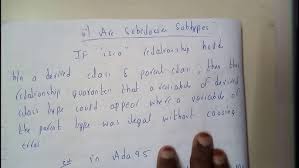 ii) Are Subclasses Subtypes
If "is-a" relationship holds
b/w a derived class & parent class, then this
relationship guarantees that a variable of derived
class type could appear where a variable of
the parent type was legal without causing
error
in Ada95